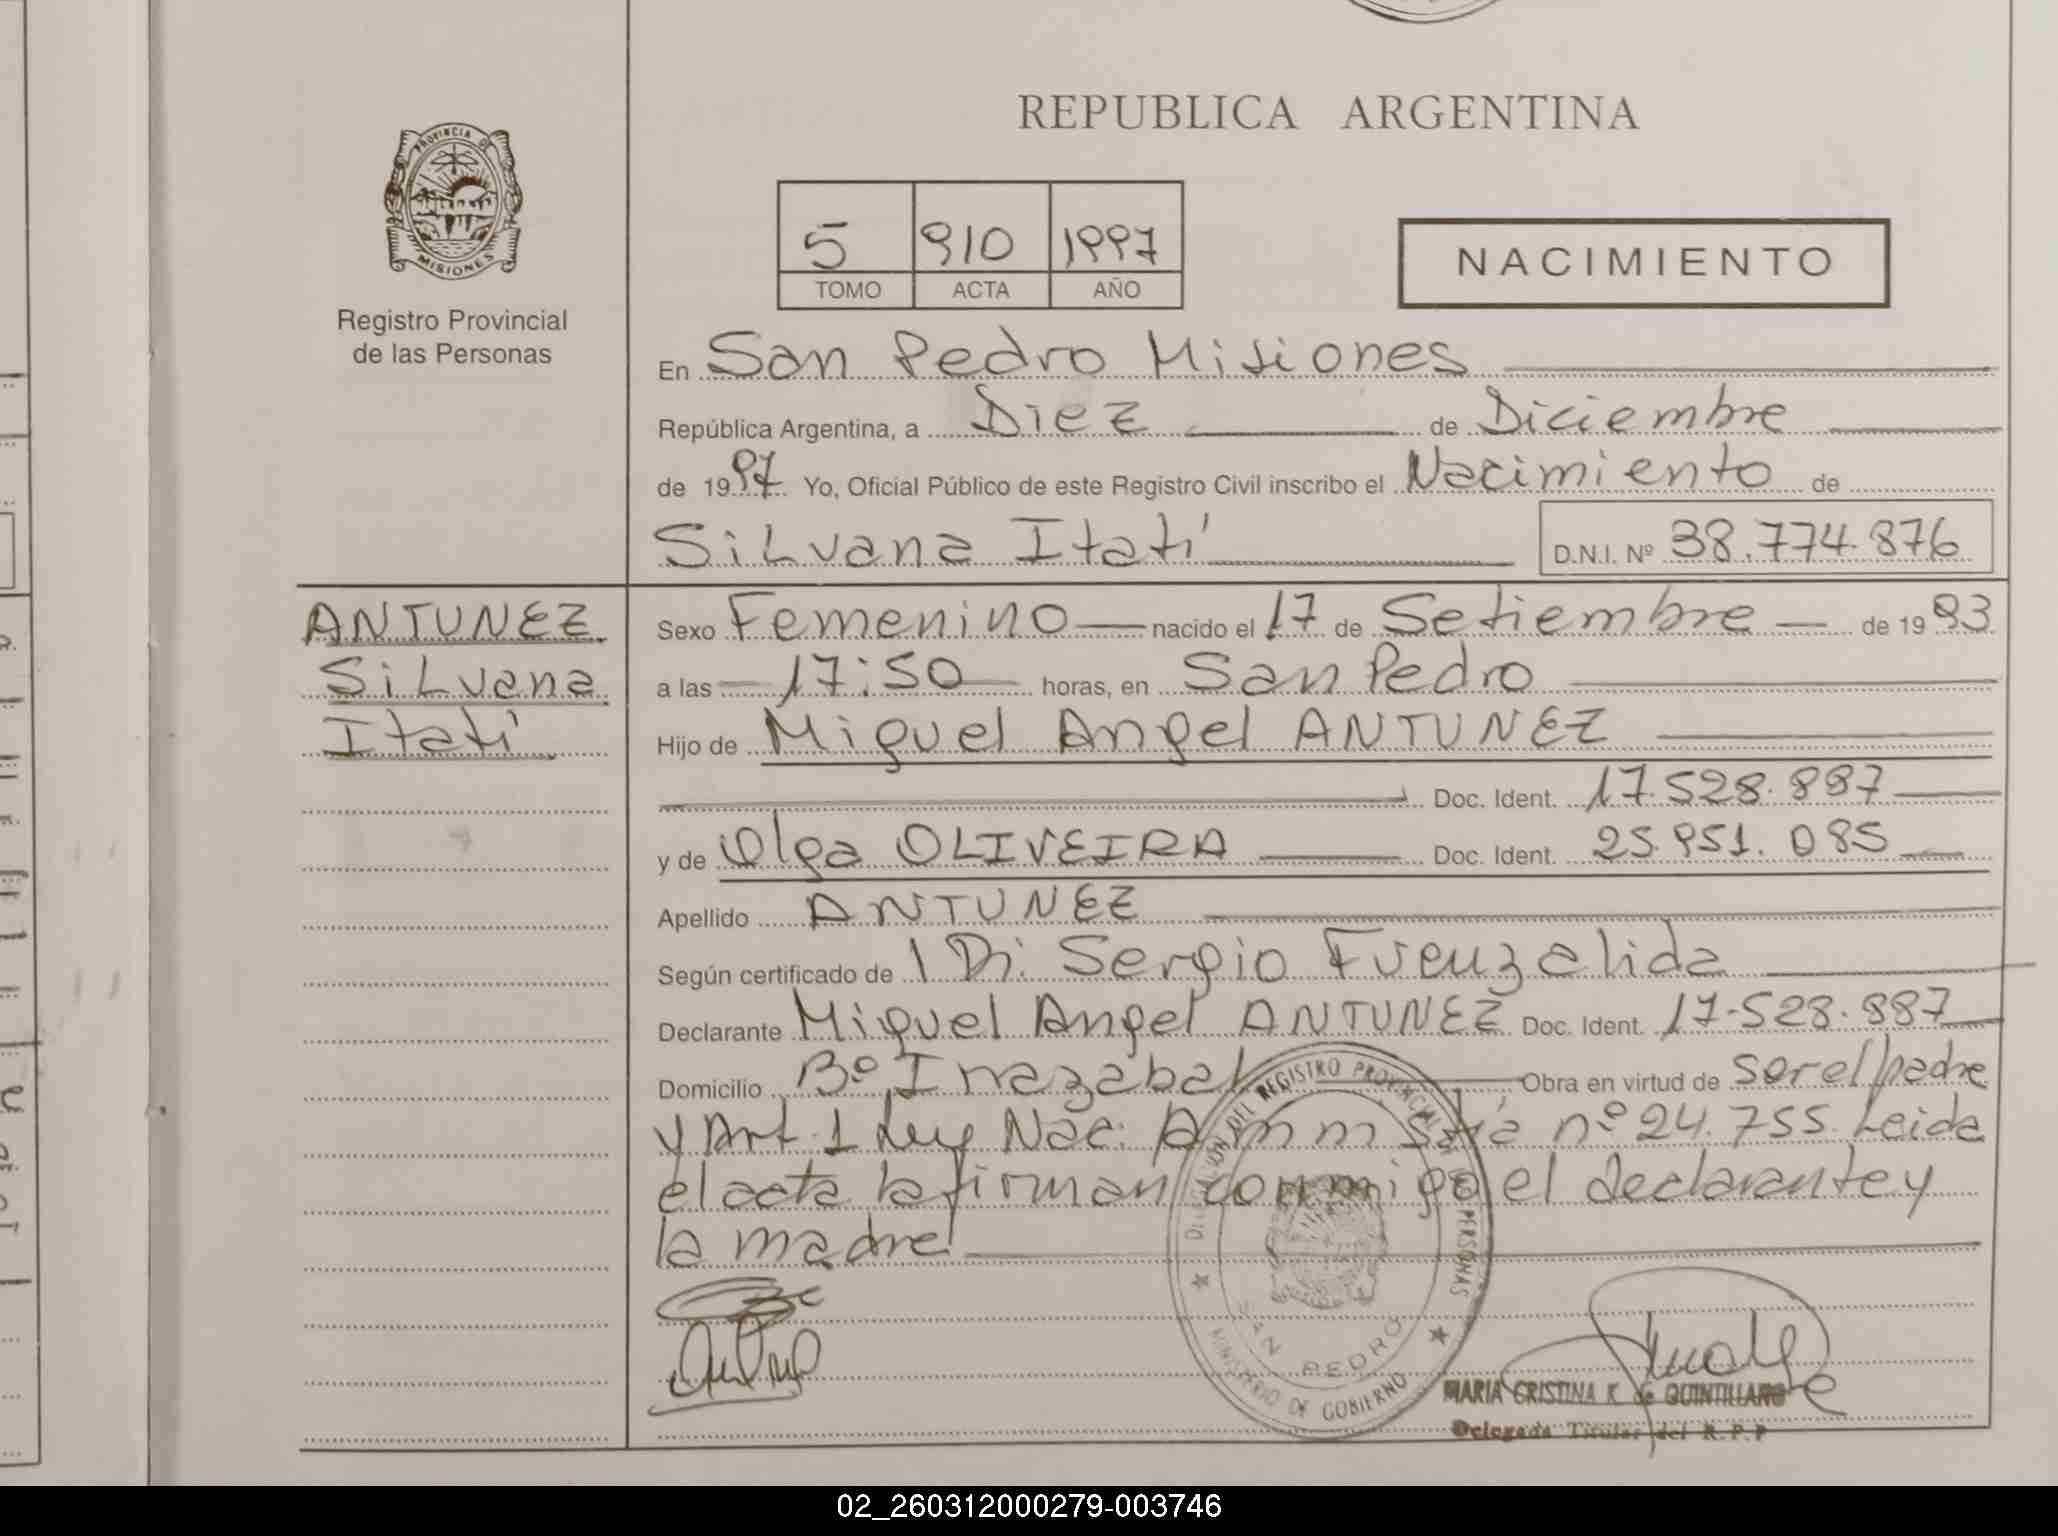 REPUBLICA ARGENTINA
PROVINCIA DE MISIONES
Registro Provincial
de las Personas
5 910 1997
TOMO ACTA AÑO
NACIMIENTO
En San Pedro Misiones
República Argentina, a Diez de Diciembre
de 1997 Yo, Oficial Público de este Registro Civil inscribo el Nacimiento de
Silvana Itatí D.N.I. Nº 38.774.876
ANTUNEZ
Silvana
Itatí
Sexo Femenino nacido el 17 de Setiembre de 1993
a las 17:50 horas, en San Pedro
Hijo de Miguel Angel ANTUNEZ
Doc. Ident. 17.528.887
y de Olga OLIVEIRA Doc. Ident. 25.951.085
Apellido ANTUNEZ
Según certificado de Sergio Fuenzalida
Declarante Miguel Angel ANTUNEZ Doc. Ident. 17.528.887
Domicilio Bº Irrazabal Obra en virtud de ser el padre
y Art. 1 Ley Nac. Amnistía nº 24.755. Leida
el acta la firman conmigo el declarante y
la madre
DELEGACION DEL REGISTRO PROVINCIAL DE LAS PERSONAS
SAN PEDRO
MINISTERIO DE GOBIERNO
MARIA CRISTINA K. de QUINTILLANO
Delegada Titular del R.P.P
02_260312000279-003746